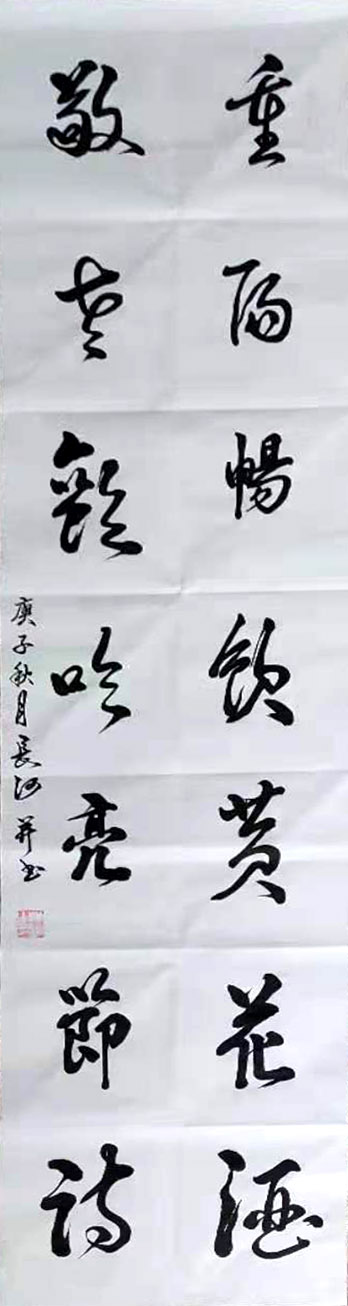 重陽暢飲黄花酒
敬老歡吟亮節詩
庚子秋月長河并书